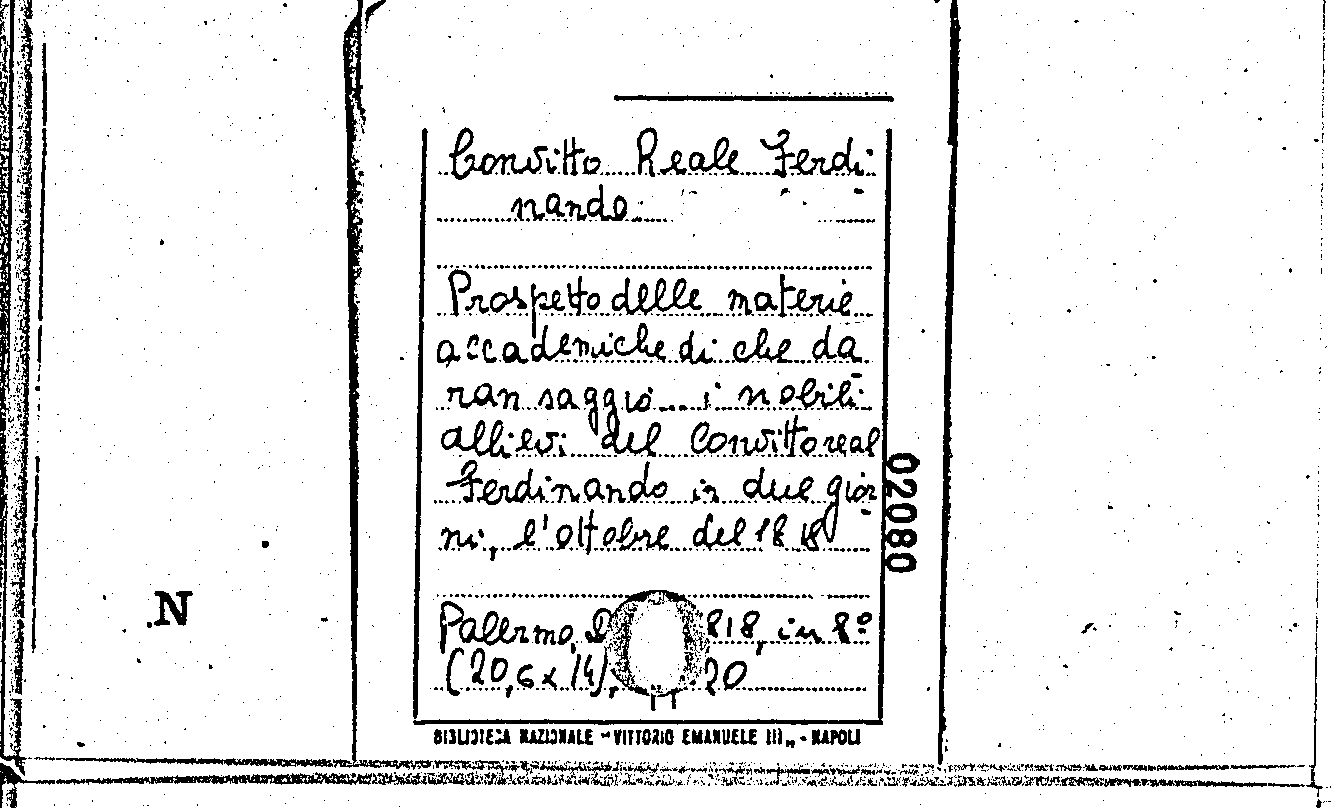 Convitto Reale Ferdi
nando.
Prospetto delle materie
accademiche di che da
ran saggio... i nobili
allievi del Convitto real
Ferdinando in due gior
ni, l'ottobre del 1818
Palermo, 818, in 8º
(20,6 x 14), 20
BIBLIOTECA NAZIONALE "VITTORIO EMANUELE III„ - NAPOLI
02080
N